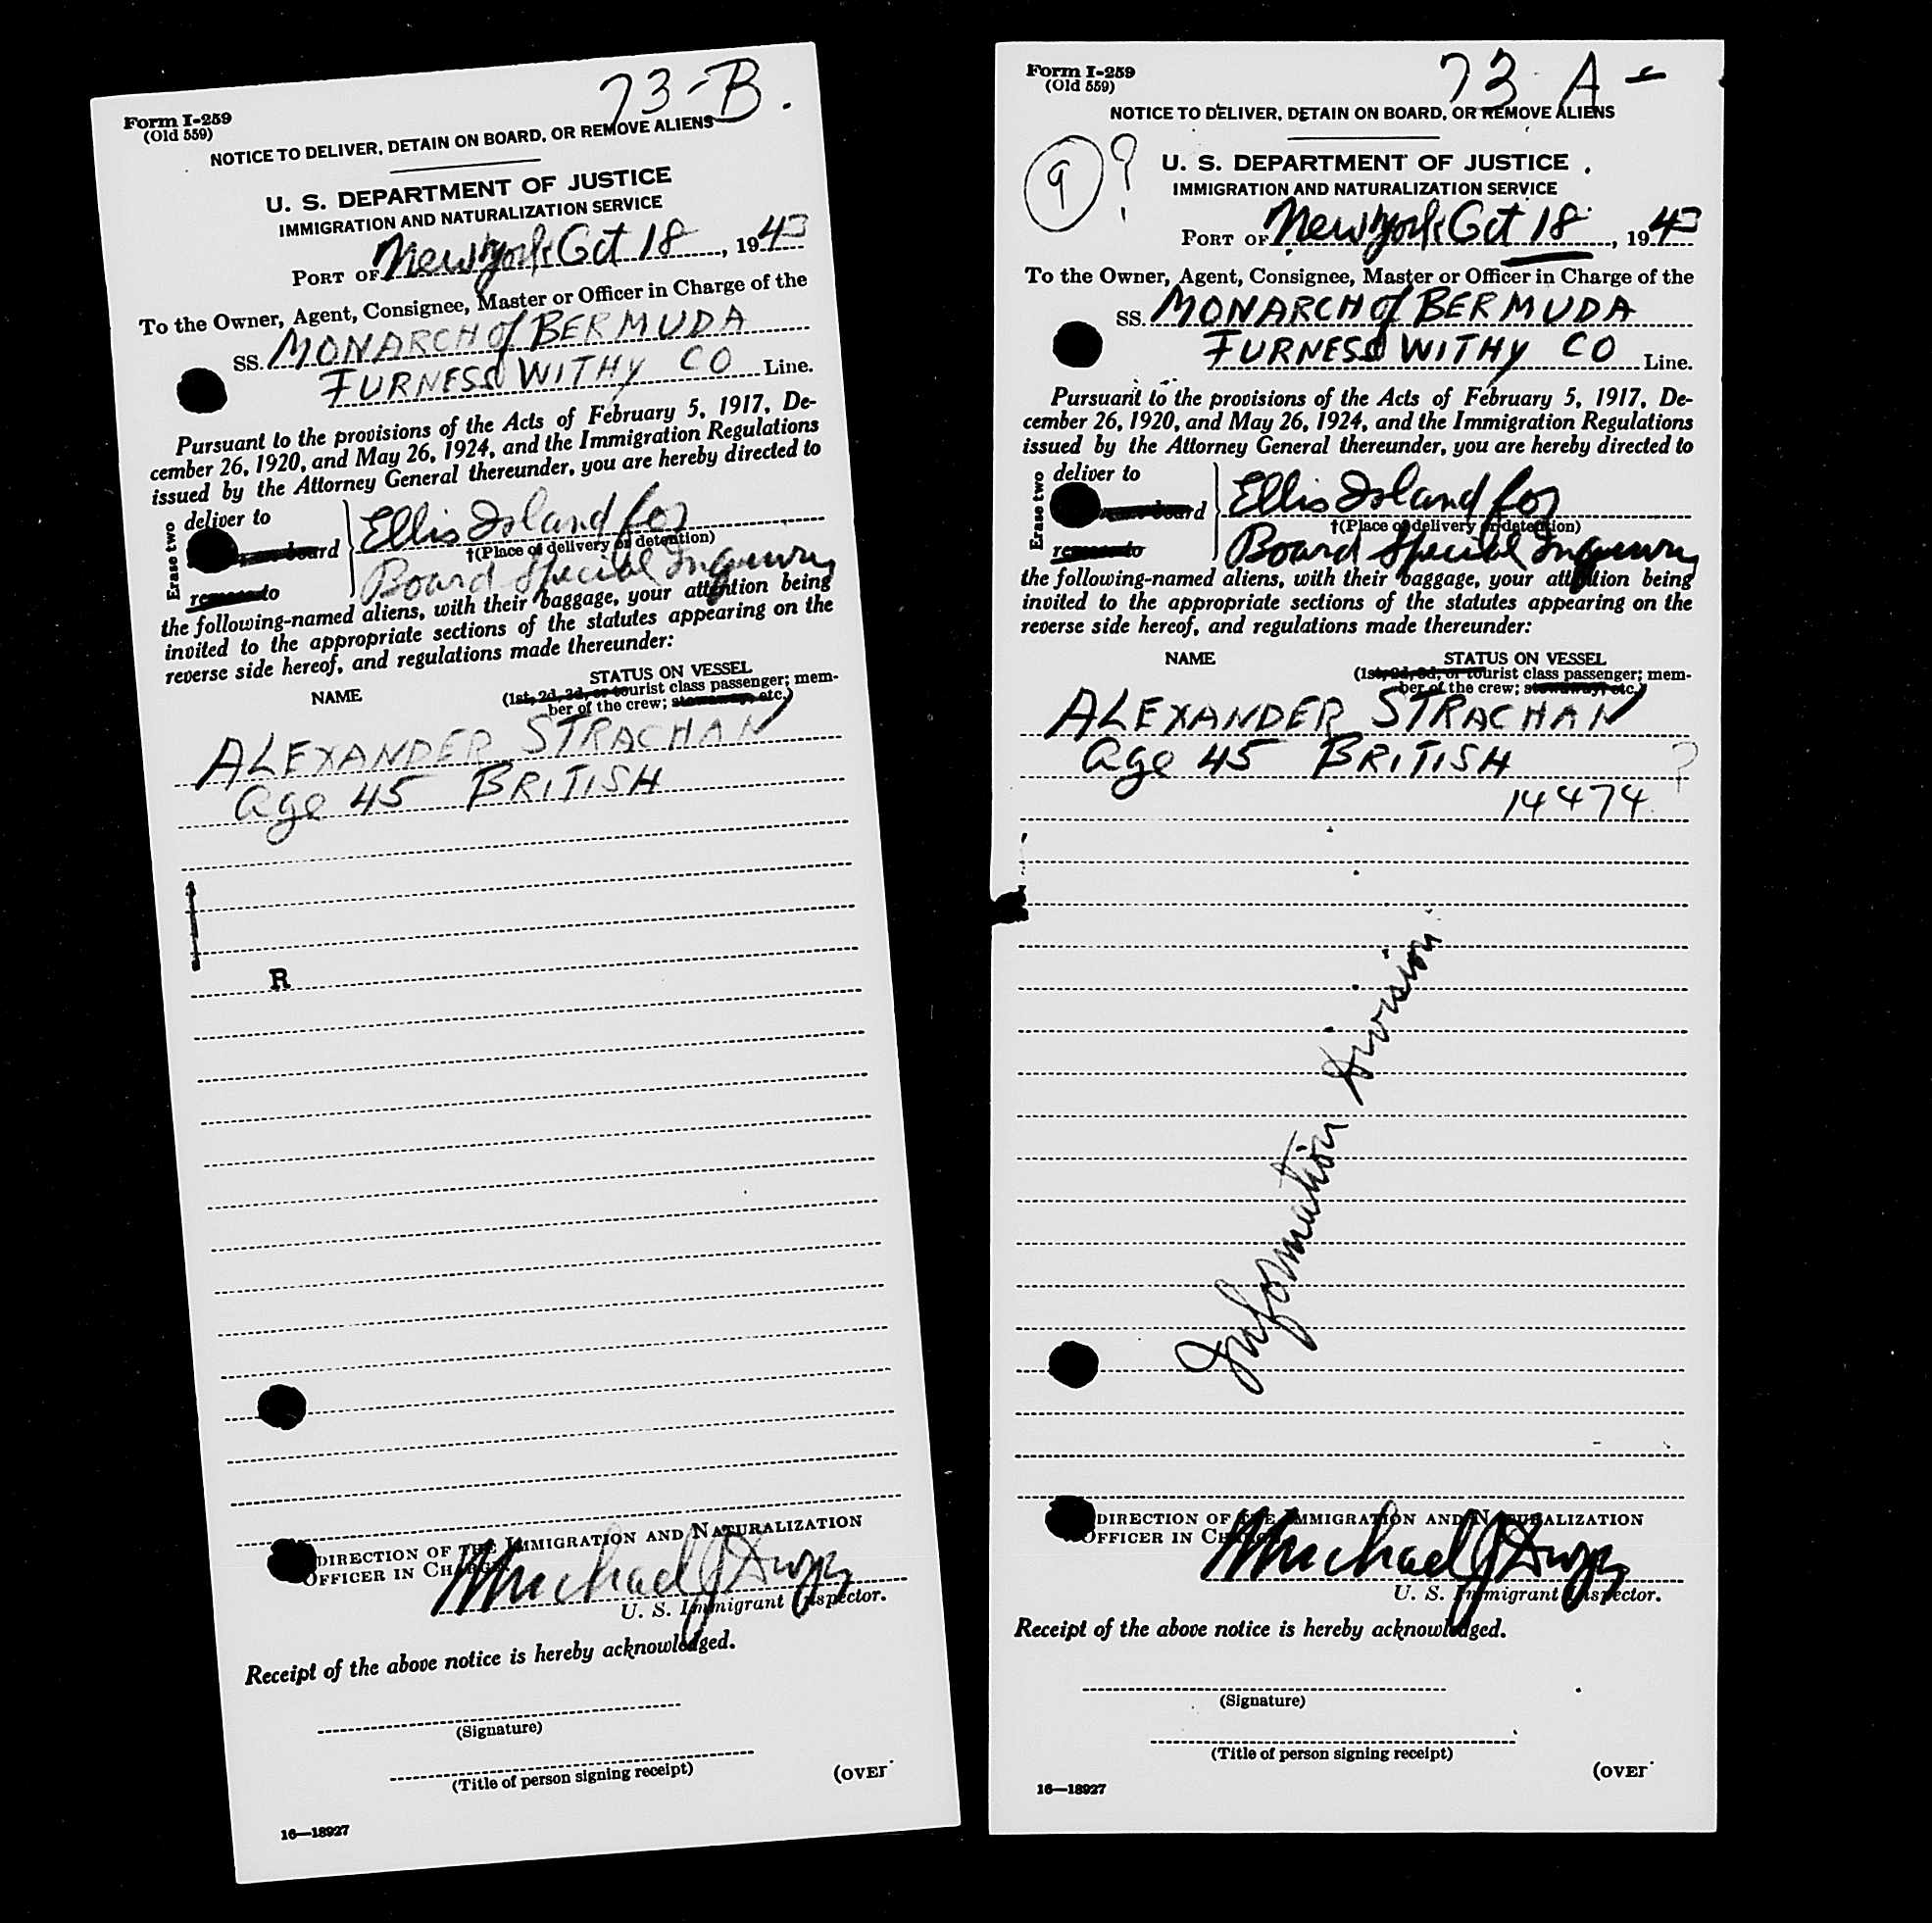 73-B.
Form I-259
(Old 559)
NOTICE TO DELIVER, DETAIN ON BOARD, OR REMOVE ALIENS
U. S. DEPARTMENT OF JUSTICE
IMMIGRATION AND NATURALIZATION SERVICE
PORT OF New York Oct 18, 1943
To the Owner, Agent, Consignee, Master or Officer in Charge of the
SS. MONARCH of BERMUDA
FURNESS WITHY CO Line.
Pursuant to the provisions of the Acts of February 5, 1917, De-
cember 26, 1920, and May 26, 1924, and the Immigration Regulations
issued by the Attorney General thereunder, you are hereby directed to
Erase two
deliver to
board
remove to
Ellis Island for
†(Place of delivery or detention)
Board Special Inquiry
the following-named aliens, with their baggage, your attention being
invited to the appropriate sections of the statutes appearing on the
reverse side hereof, and regulations made thereunder:
NAME STATUS ON VESSEL
(1st, 2d, 3d, or tourist class passenger; mem-
ber of the crew; stowaway, etc.)
ALEXANDER STRACHAN
Age 45 BRITISH
R
DIRECTION OF THE IMMIGRATION AND NATURALIZATION
OFFICER IN CHARGE
Michael J
U. S. Immigrant Inspector.
Receipt of the above notice is hereby acknowledged.
(Signature)
(Title of person signing receipt)
(OVER
16—18927
73 A-
Form I-259
(Old 559)
NOTICE TO DELIVER, DETAIN ON BOARD, OR REMOVE ALIENS
9 ?
U. S. DEPARTMENT OF JUSTICE
IMMIGRATION AND NATURALIZATION SERVICE
PORT OF New York Oct 18, 1943
To the Owner, Agent, Consignee, Master or Officer in Charge of the
SS. MONARCH of BERMUDA
FURNESS WITHY CO Line.
Pursuant to the provisions of the Acts of February 5, 1917, De-
cember 26, 1920, and May 26, 1924, and the Immigration Regulations
issued by the Attorney General thereunder, you are hereby directed to
Erase two
deliver to
board
remove to
Ellis Island for
†(Place of delivery or detention)
Board Special Inquiry
the following-named aliens, with their baggage, your attention being
invited to the appropriate sections of the statutes appearing on the
reverse side hereof, and regulations made thereunder:
NAME STATUS ON VESSEL
(1st, 2d, 3d, or tourist class passenger; mem-
ber of the crew; stowaway, etc.)
ALEXANDER STRACHAN
Age 45 BRITISH ?
14474
Information Division
DIRECTION OF THE IMMIGRATION AND NATURALIZATION
OFFICER IN CHARGE
Michael J
U. S. Immigrant Inspector.
Receipt of the above notice is hereby acknowledged.
(Signature)
(Title of person signing receipt)
(OVER
16—18927